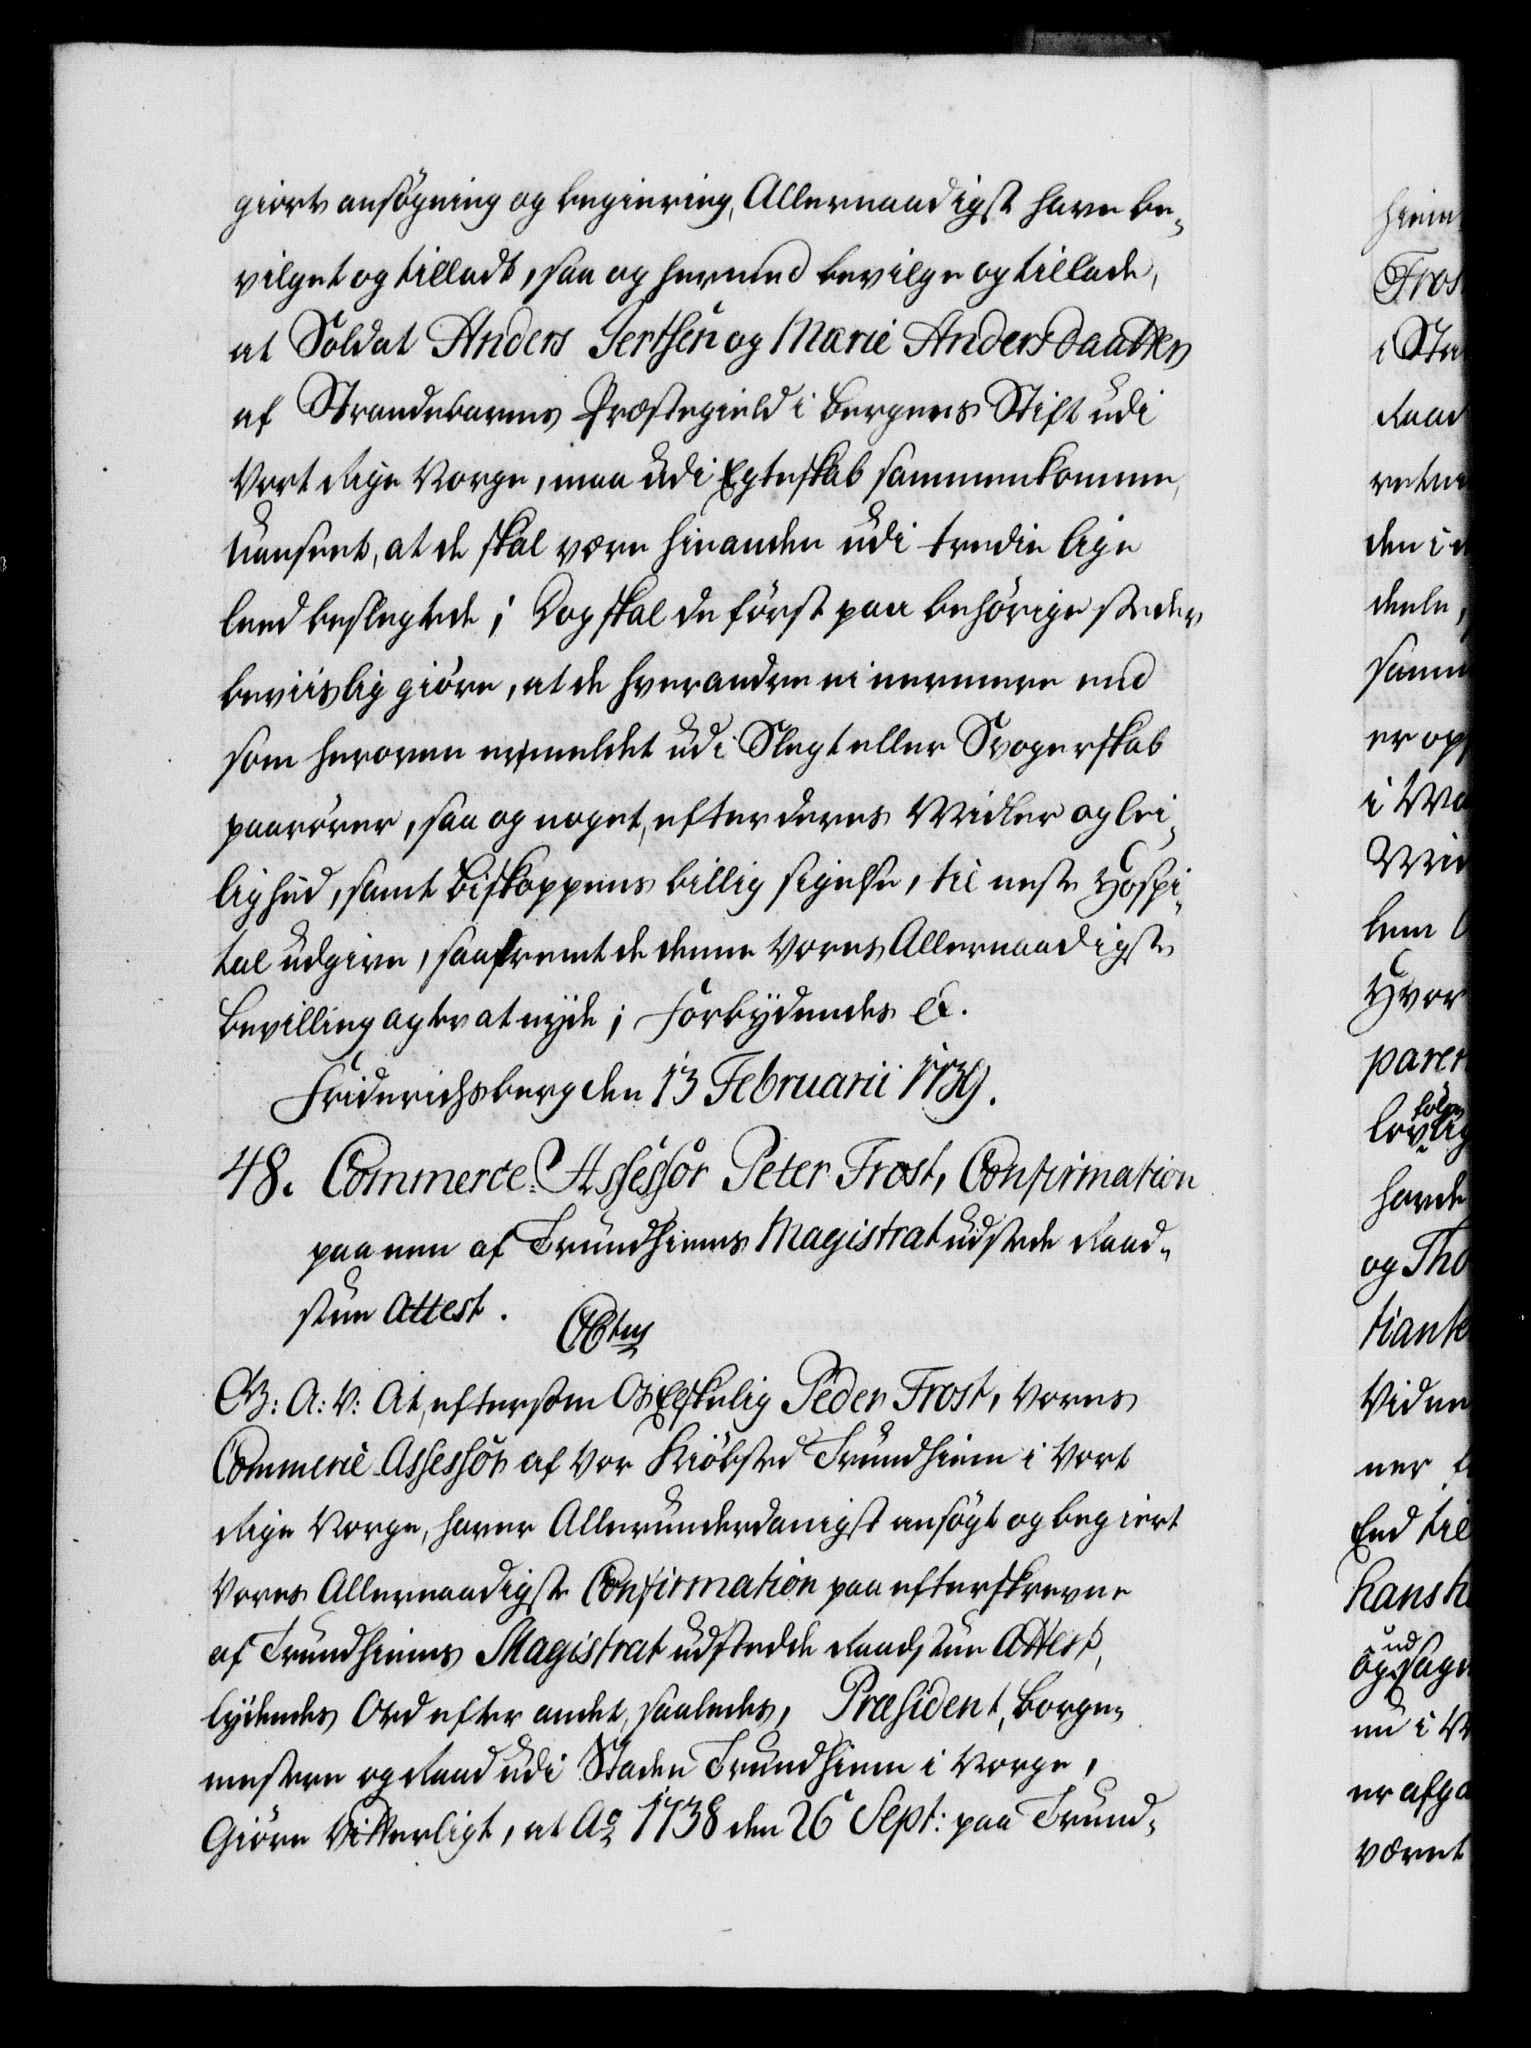 giorte ansøgning og begiering, Allernaadigst have be-
vilget og tilladt, saa og hermed bevilge og tillade,
at Soldat Anders Jertsen og Marie Andersdaatter
af Strandebarms Præstegield i Bergens Stift udi
Vort Rige Norge, maa udi Egteskab sammenkomme,
Uanseet, at de skal være hinanden udi tredie lige
leed beslegtede; Dog skal de først paa behørige steder
beviislig giøre, at de hverandre ei nermere end
som heroven er meldet udi Slegt eller Svogerskab
paarører, saa og noget, efter deres Midler og lei-
lighed, samt Biskoppens billig sigelse, til neste Hospi-
tal udgive, saafremt de denne Vores Allernaadigste
bevilling agter at nyde; Forbydendes &.
Friderichsberg den 13 Februarii 1739.
48. Commerce-Assessor Peter Frost, Confirmation
paa een af Trundhiems Magistrat udstede Raad-
stue Attest.
C6tus
G: A: V: At, eftersom Os Elskelig Peder Frost, Vores
Commercie Assessor af Vor Kiøbsted Trundhiem i Vort
Rige Norge, haver Allerunderdanigst ansøgt og begiert
Vores Allernaadigste Confirmation paa efterskrevne
af Trundhiems Magistrat udstedde Raadstue Attest,
lydendes Ord efter andet, saaledes, Præsident, Borge-
mestere og Raad udi Staden Trundhiem i Norge,
Giøre Vitterligt, at Ao 1738 den 26 Sept: paa Trund-
hiem
Fros
i Sta
Raad
den i
deele,
samm
er op
i
lem
Hvor
parer
følg
lovlig
havde
og Tho
tiante
Viden
ner
End til
hans
ud
og sage
er afga
været